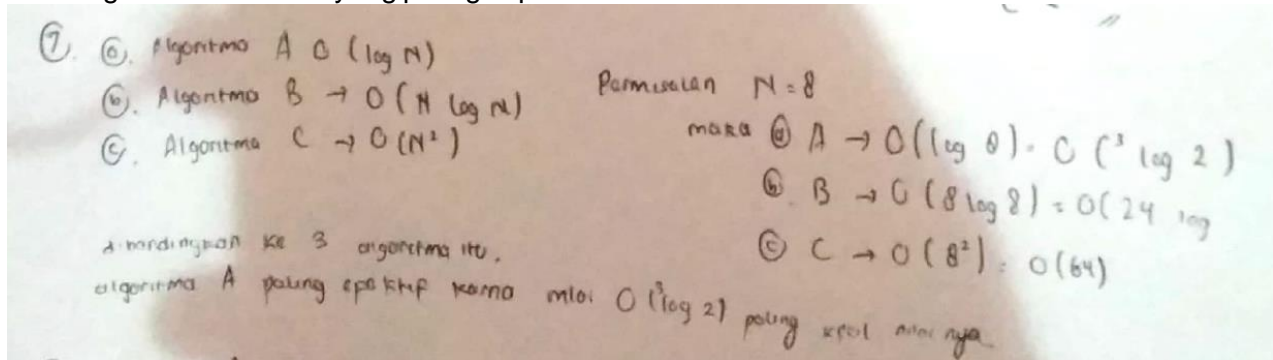 7. a. Algoritma A O (log N)
b. Algoritma B → O (N log N)
c. Algoritma C → O (N²)
Permisalan N = 8
maka a A → O (log 8) = O (³ log 2)
b. B → O (8 log 8) = O (24 log
c C → O (8²) = O (64)
dibandingkan ke 3 algoritma itu,
algoritma A paling epektif karna nilai O (³log 2) paling kecil nilai nya